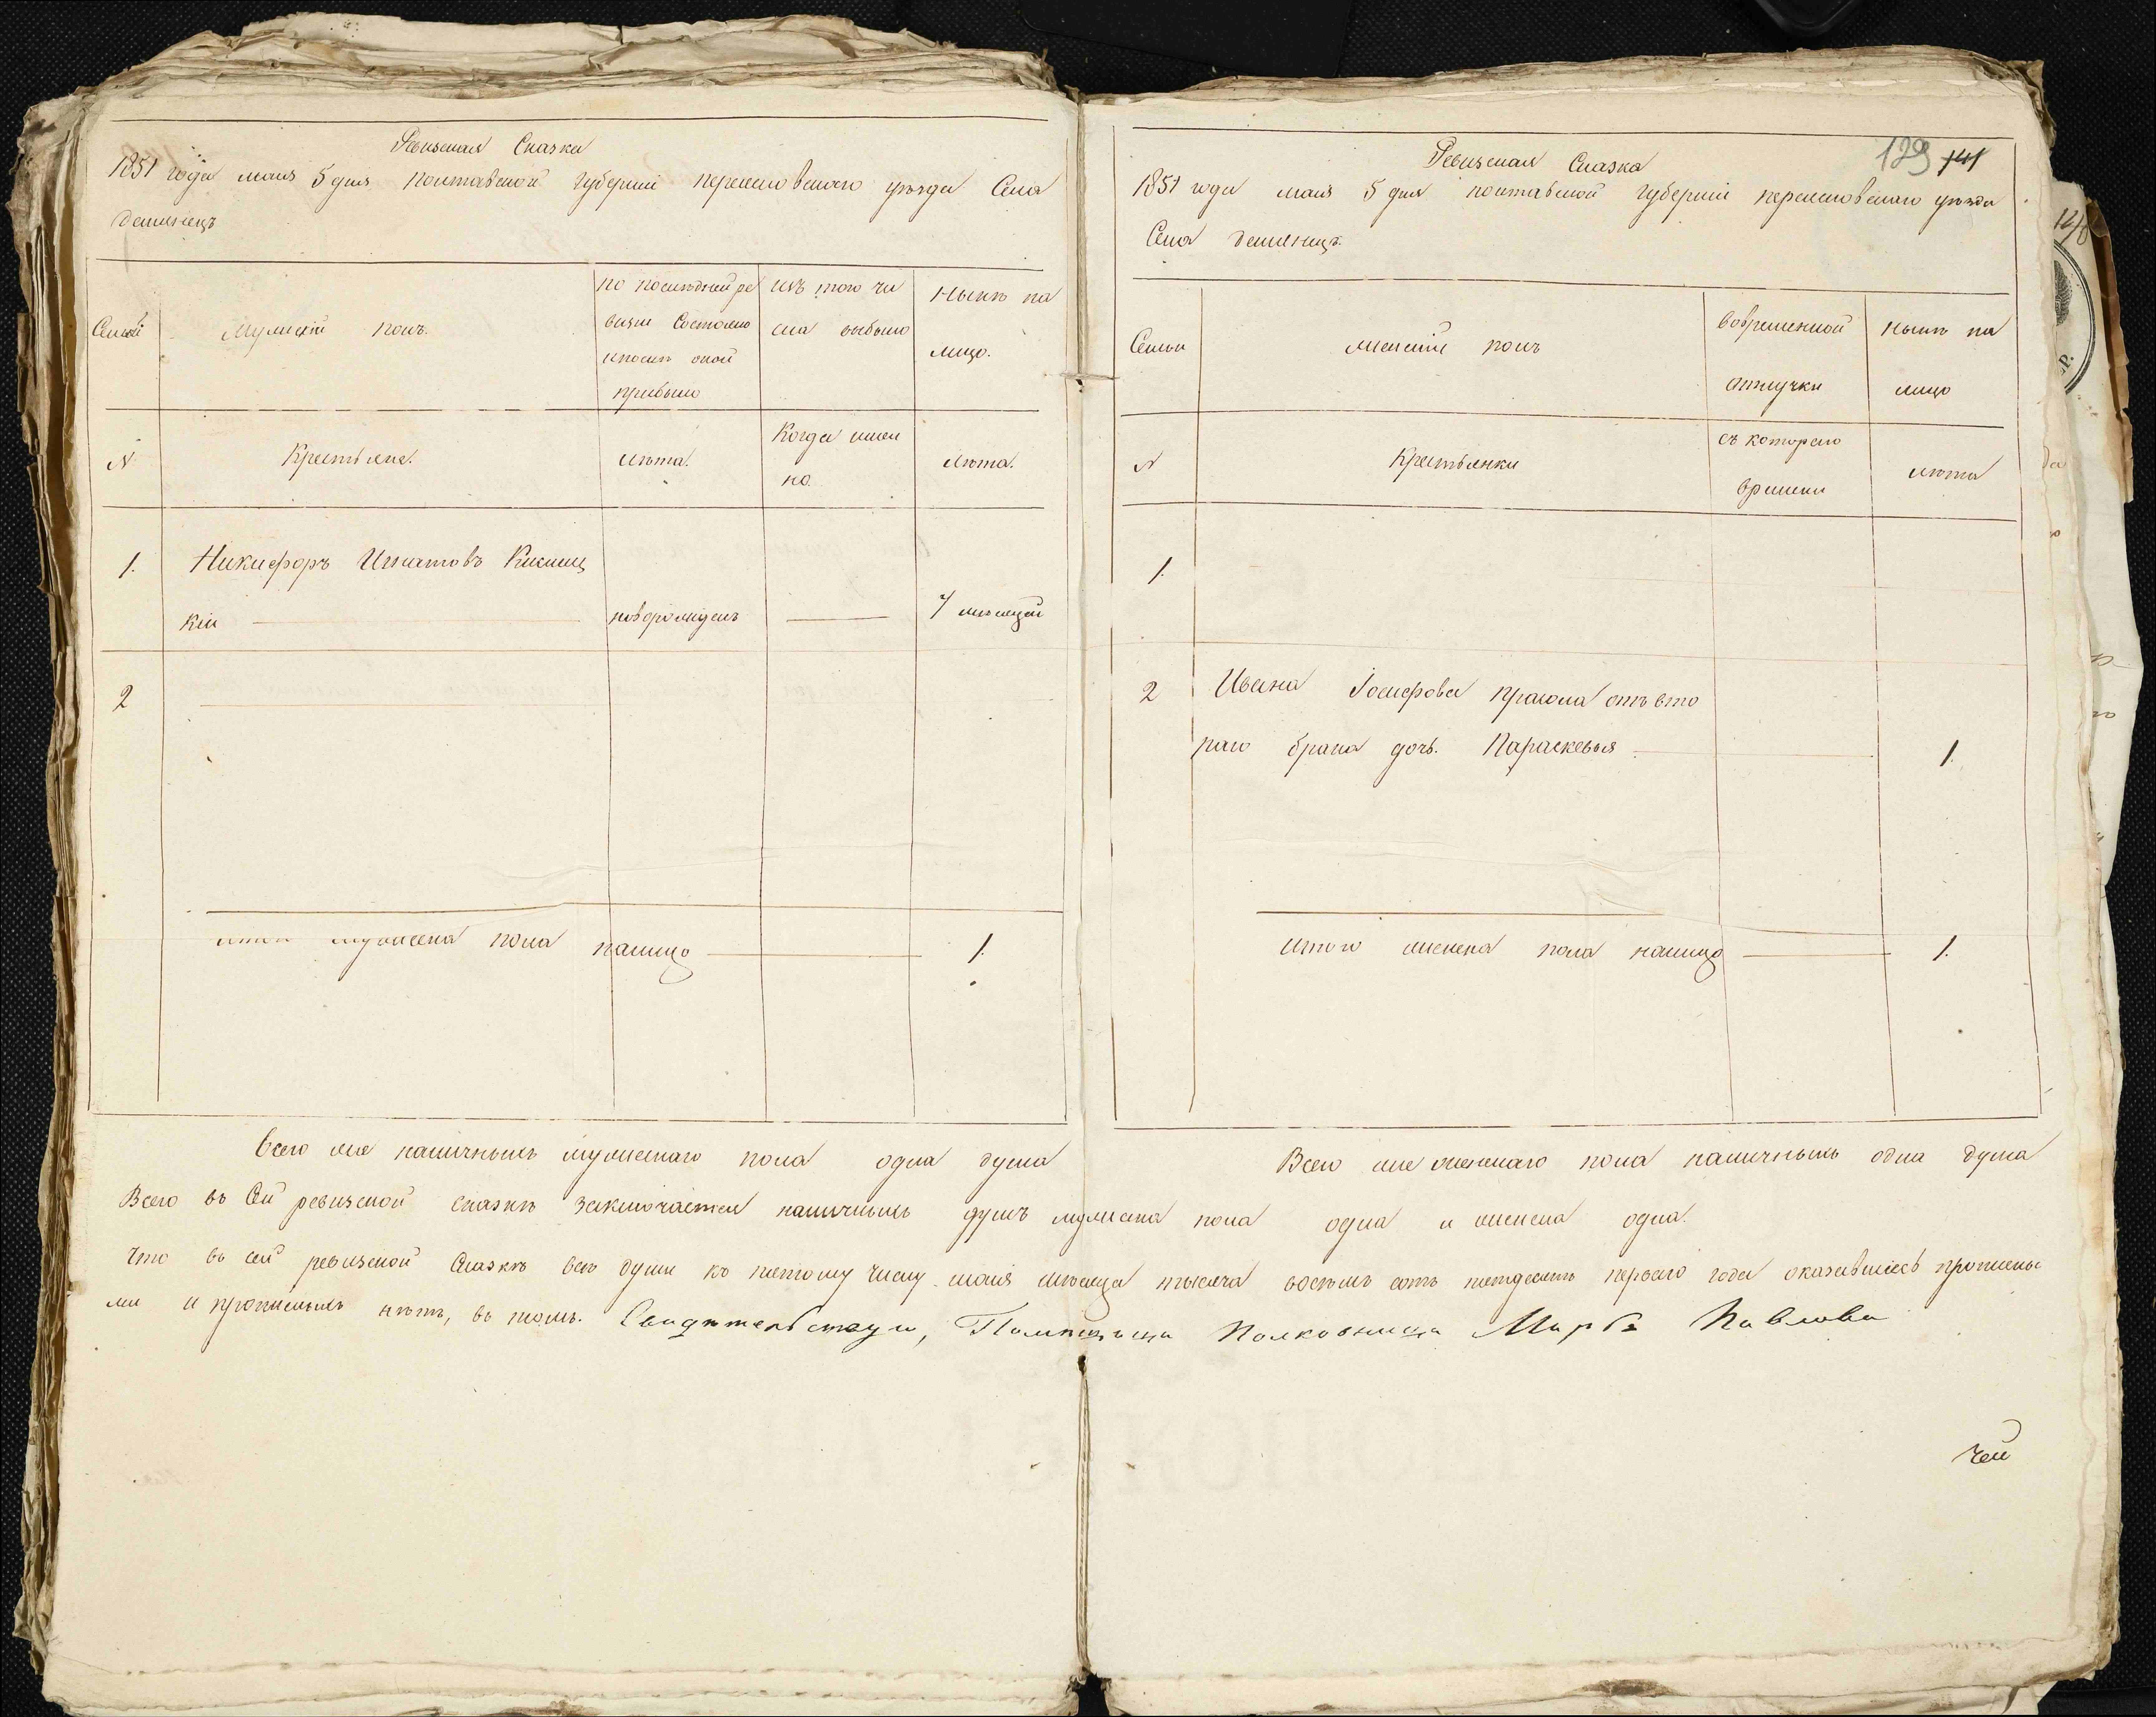 Ревизская Сказка
1851 года мая 5 дня полтавской губернии переяславскаго уезда Села
Демянецъ
Семьи
Мужеский полъ.
по последней ре
визии Состояло
ипосле оной
прибыло
изъ того чи
сла выбыло
Ныне на
лицо.
N
Крестьяне.
лета.
Когда имен
но.
лета.
1.
Никифоръ Игнатовъ
кий
новорожденъ
7 месяцей
2
итого мужеска пола налицо 1.
Всего же наличныхъ мужескаго пола одна душа
129 141
Ревизская Сказка
1851 года мая 5 дня полтавской губернии переяславскаго уезда
Села Демянецъ
Семьи
Женский полъ
вовременной
отлучки
Ныне на
лицо
N
Крестьянки
съ котораго
времени
лета
1.
2 Ивана Іосифова отъ вто
раго брака дочь. Параскевья 1.
итого женска пола налицо 1.
Всего же женскаго пола наличныхъ одна душа
Всего въ Сей ревизской сказке заключается наличныхъ душъ мужеска пола одна и женска одна.
Что въ сей ревизской Сказке все души къ пятому числу мая месяца тысяча восемь сотъ пятдесятъ перваго года оказавшиесь прописаны
ми и прописныхъ нетъ, въ томъ. Свидетельствую, Помещица Полковница Марфа Павлова
чей